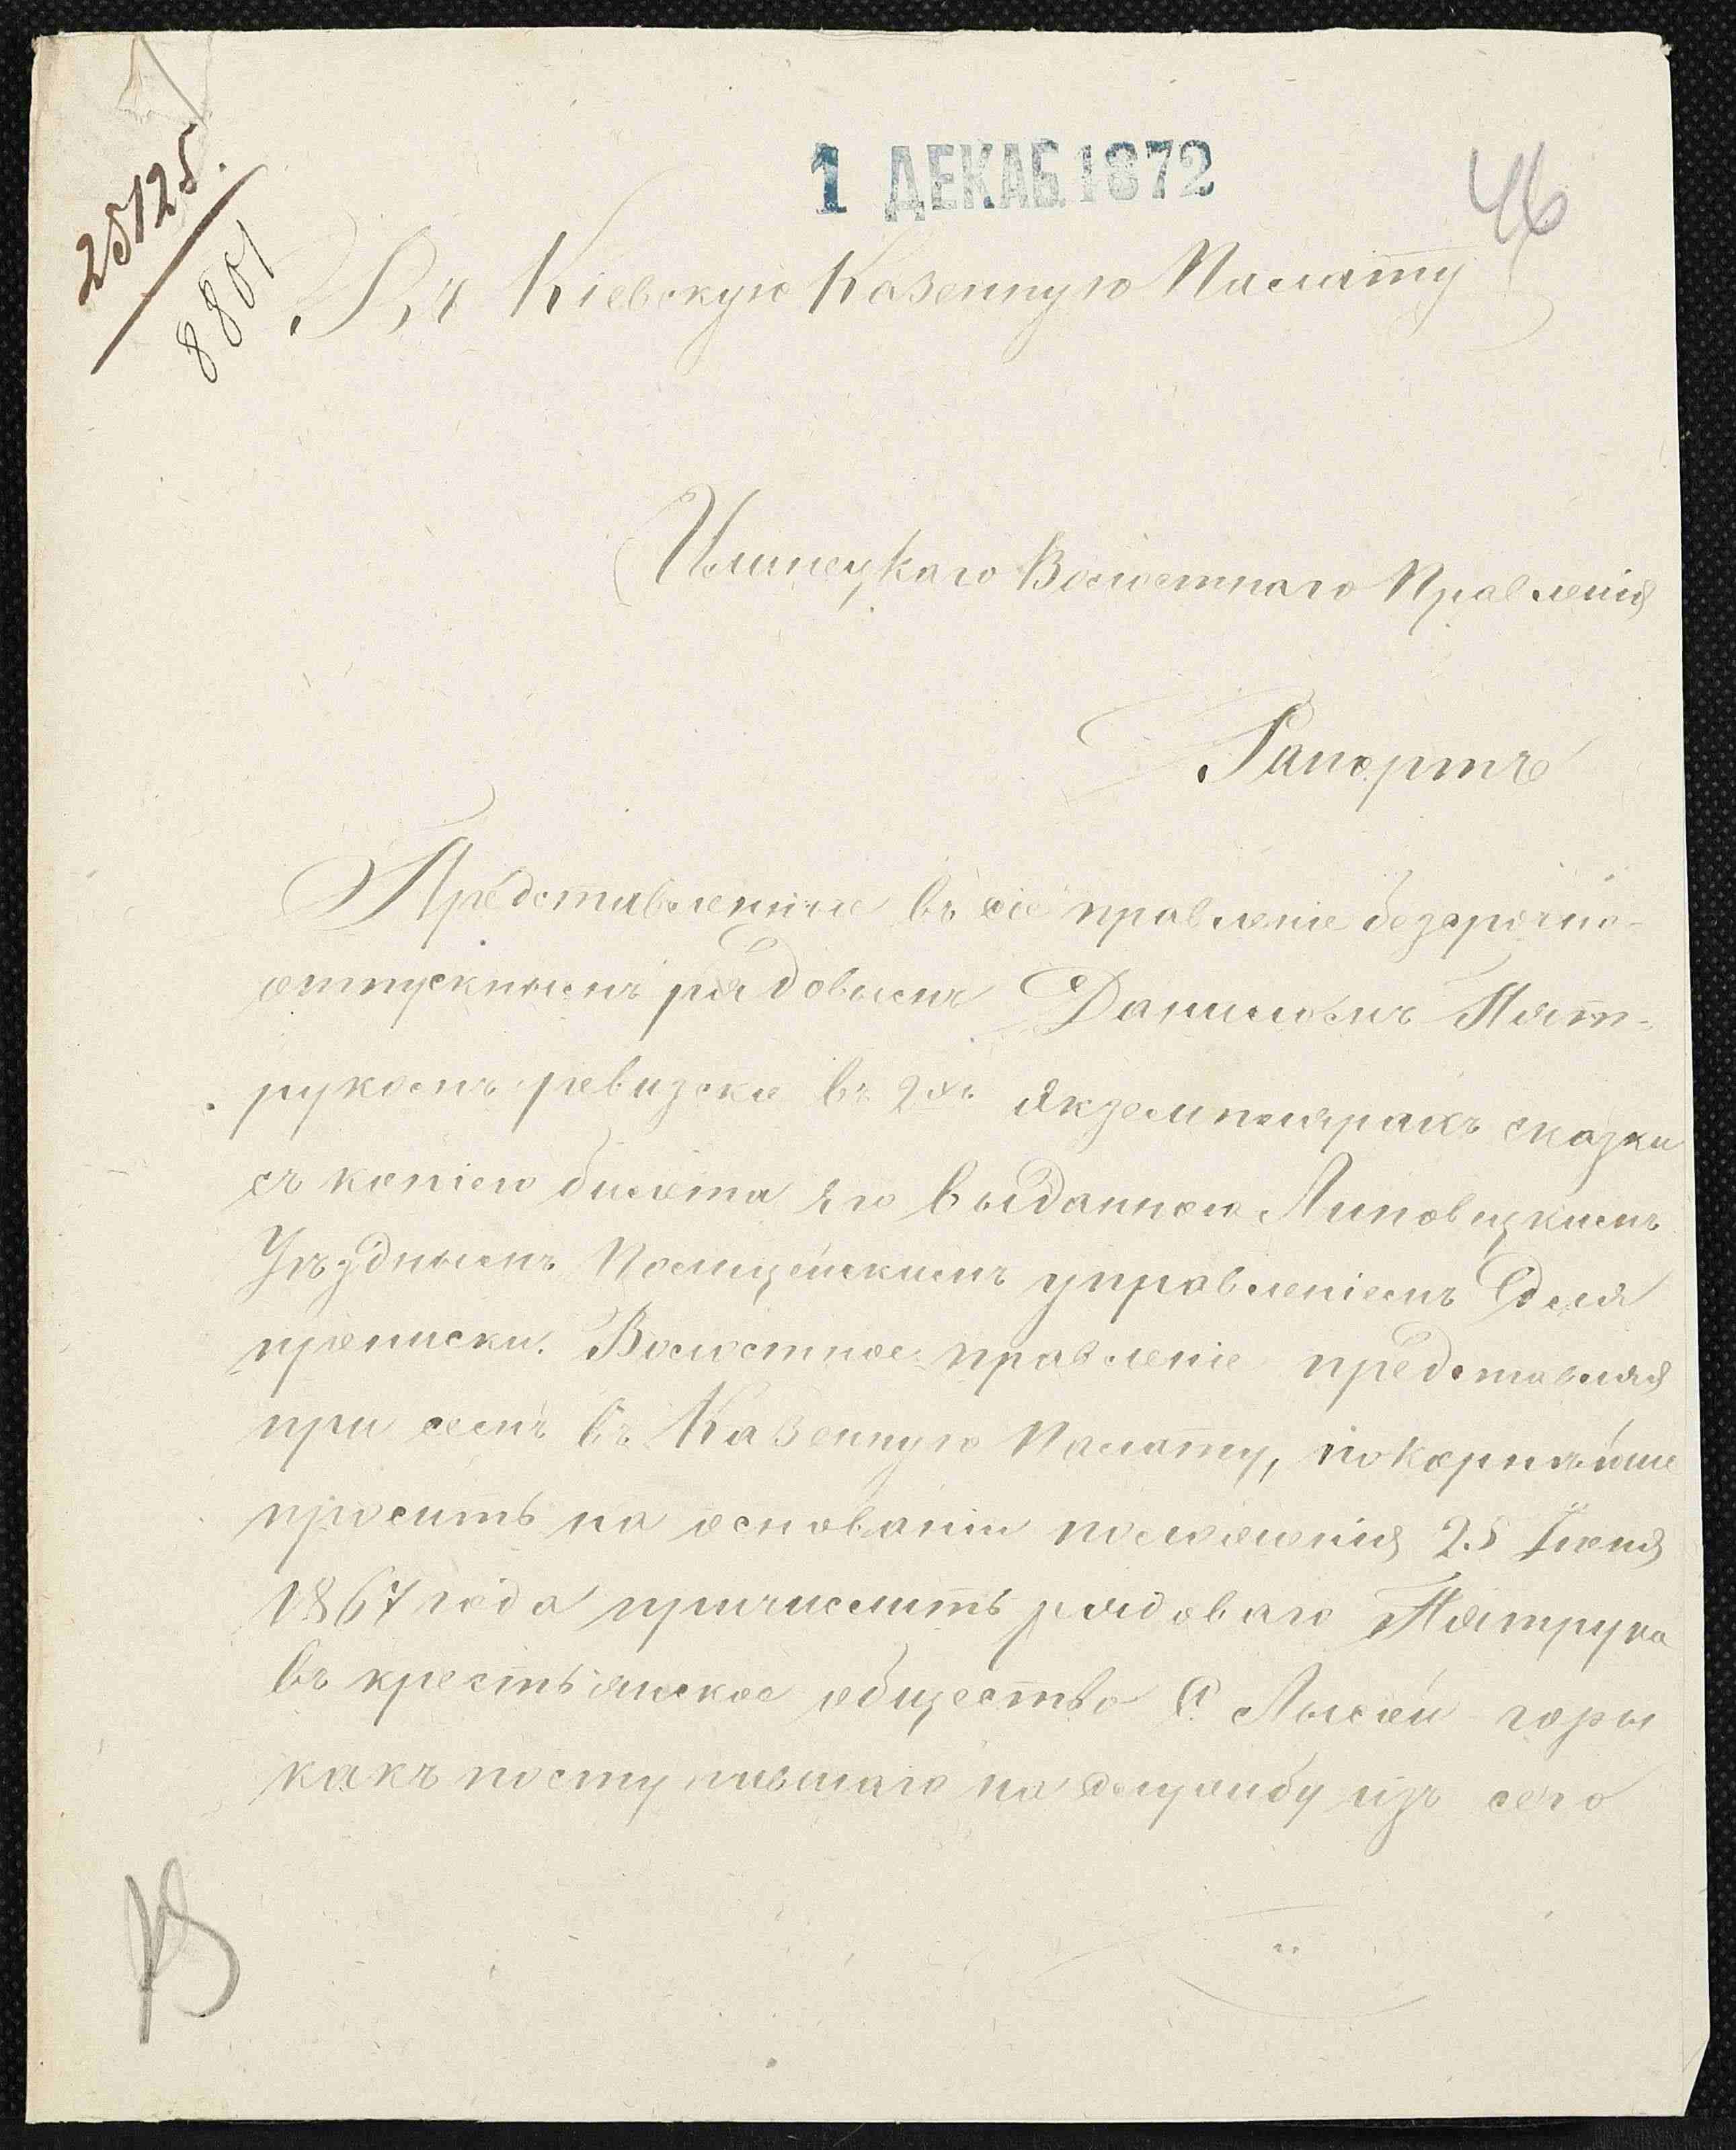 25125.
8801
1 ДЕКАБ 1872
46
Въ Кіевскую Казенную Палату
Илинецкаго Волостнаго Правленія
Рапортъ
Представленные въ сіе правленіе безсрочно-
отпускнымъ рядовымъ Даниломъ Пят-
рукомъ ревизские въ 2хъ экземплярахъ сказки
съ копіею билета его выданною Липовецкимъ
Уѣзднымъ Полицейскимъ управленіемъ для
приписки. Волостное правленіе представляя
при семъ въ Казенную Палату, покорнѣйше
проситъ на основаніи положенія 25 Іюня
1867 года причислить рядоваго Пятрука
въ крестьянское общество С. Лысой горы
какъ поступившаго на службу изъ сего